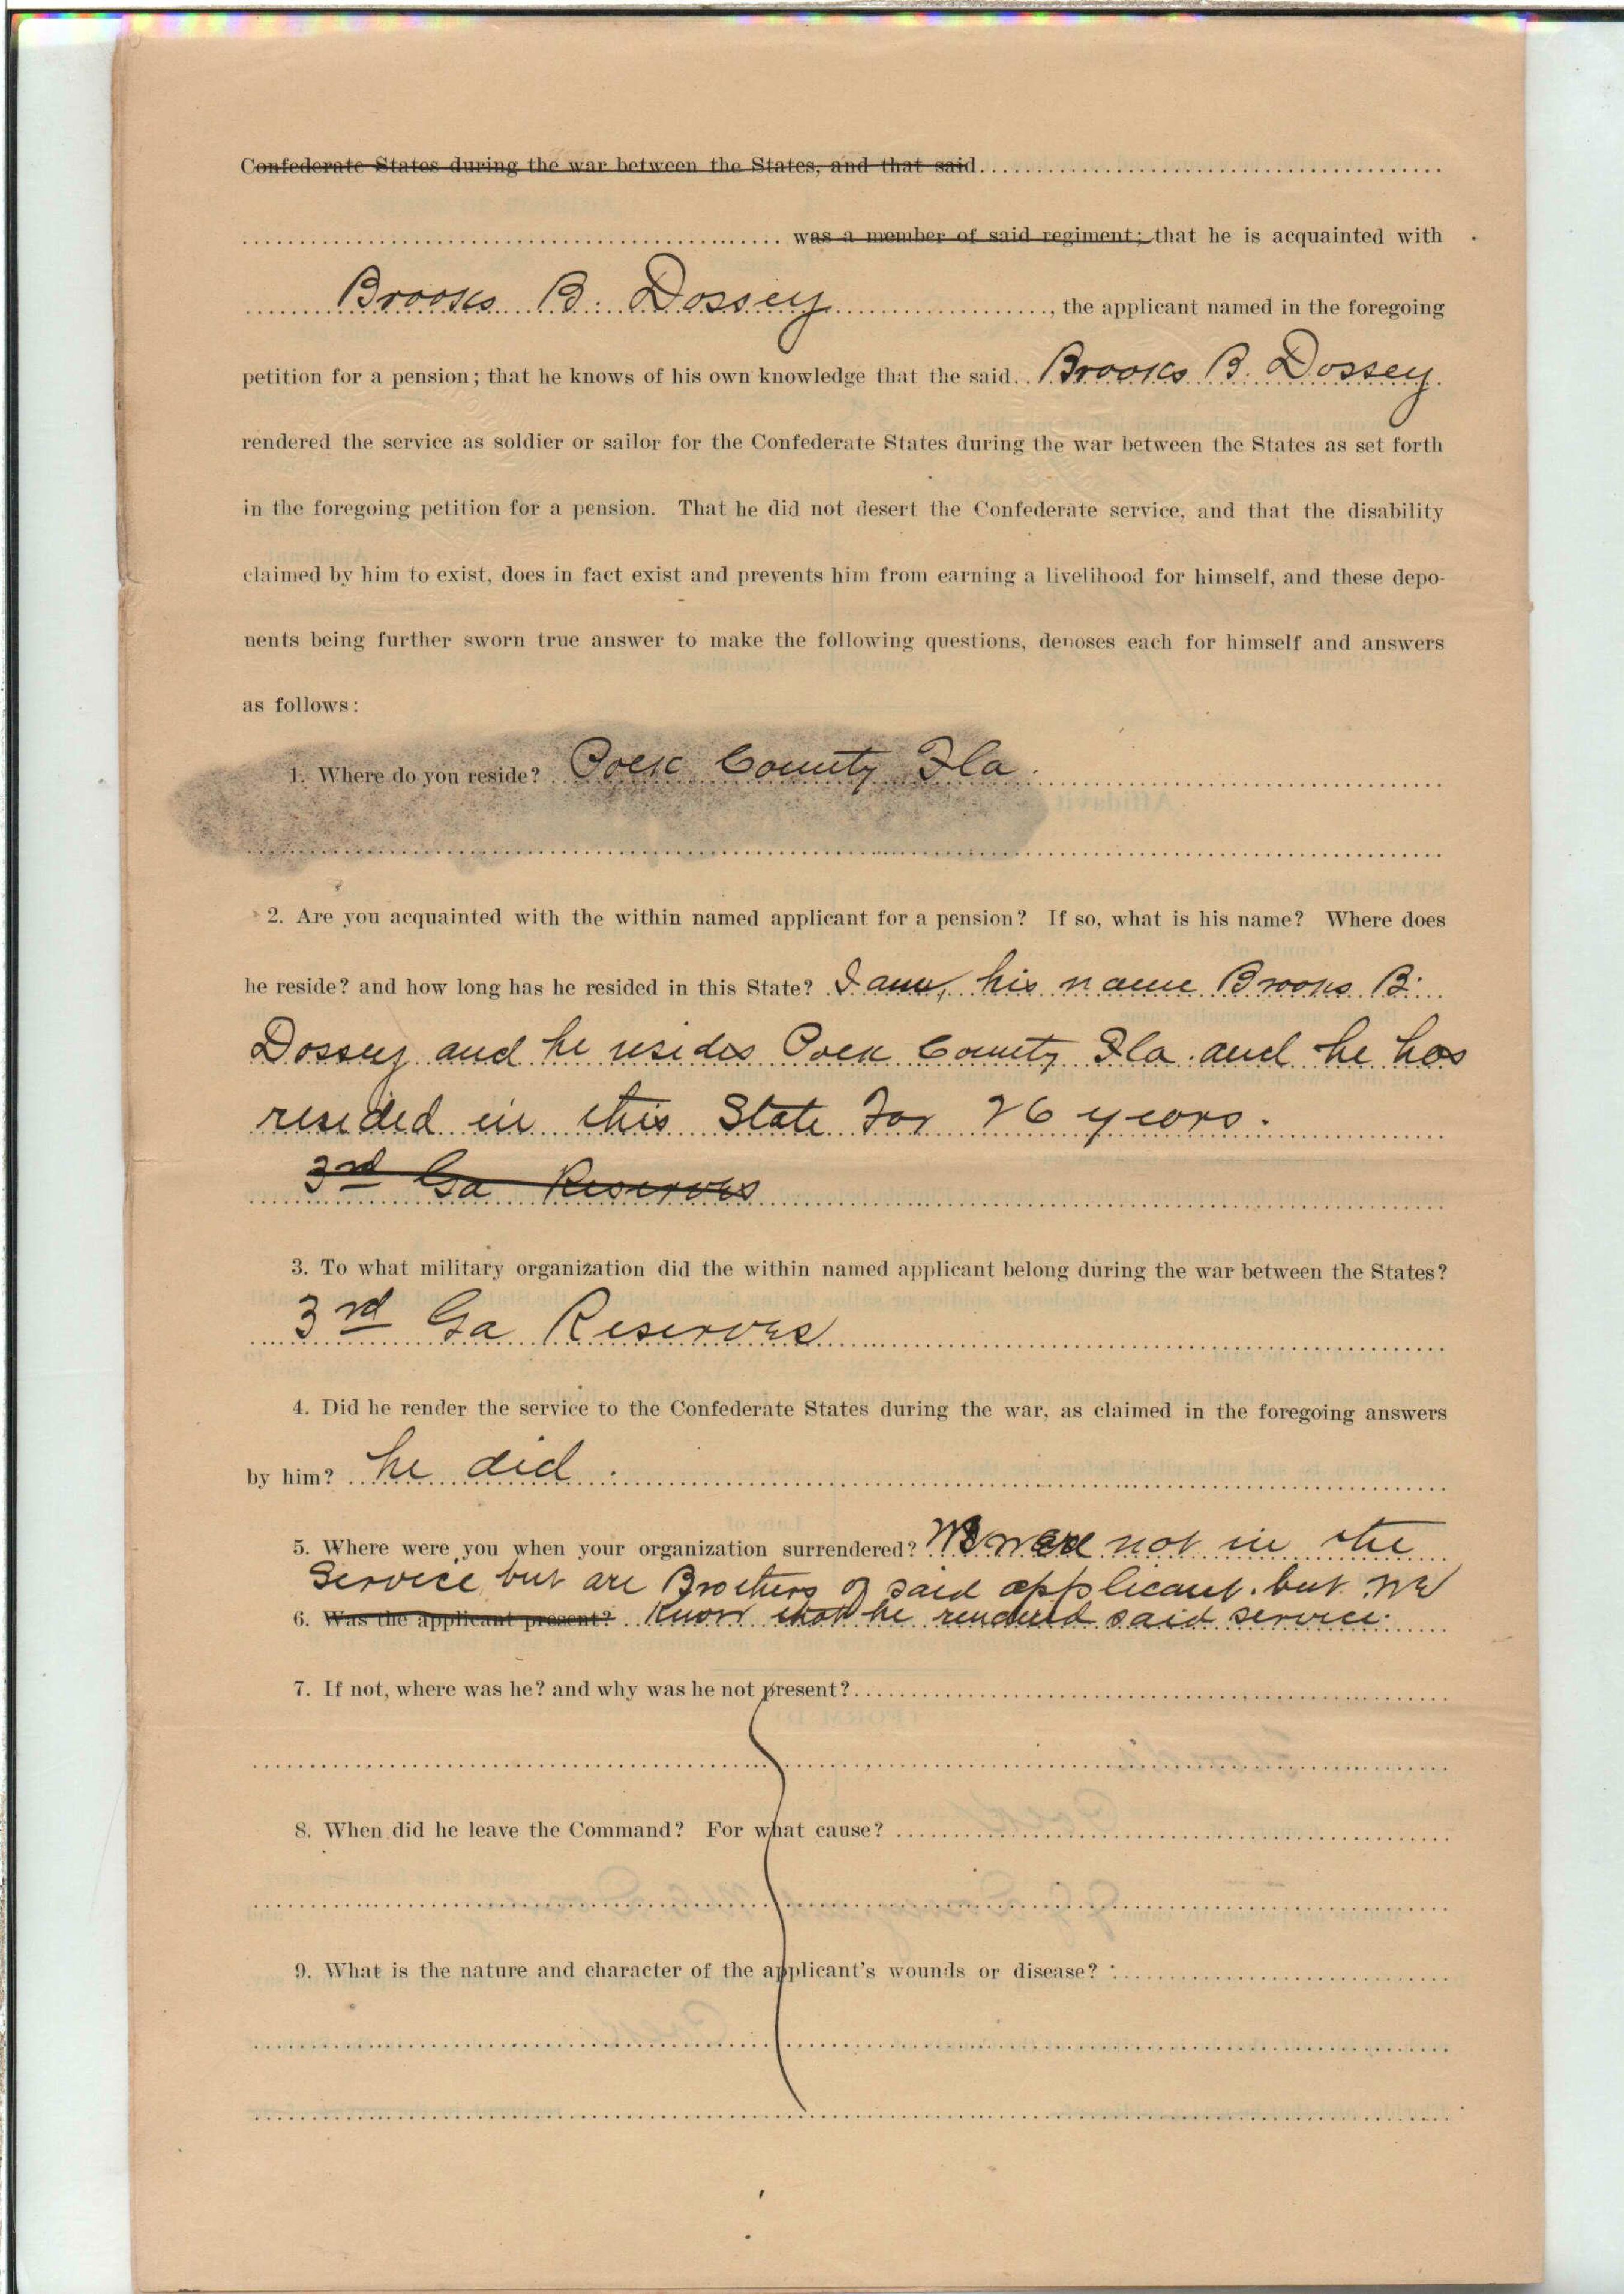 Confederate States during the war between the States, and that said
was a member of said regiment; that he is acquainted with
Brooks B. Dossey, the applicant named in the foregoing
petition for a pension; that he knows of his own knowledge that the said Brooks B. Dossey
rendered the service as soldier or sailor for the Confederate States during the war between the States as set forth
in the foregoing petition for a pension. That he did not desert the Confederate service, and that the disability
claimed by him to exist, does in fact exist and prevents him from earning a livelihood for himself, and these depo-
nents being further sworn true answer to make the following questions, deposes each for himself and answers
as follows:
1. Where do you reside? Polk County Fla.
2. Are you acquainted with the within named applicant for a pension? If so, what is his name? Where does
he reside? and how long has he resided in this State? I am, his name Brooks B.
Dossey and he resides Polk County Fla. and he has
resided in this State for 26 years.
3rd Ga Reserves
3. To what military organization did the within named applicant belong during the war between the States?
3rd Ga Reserves
4. Did he render the service to the Confederate States during the war, as claimed in the foregoing answers
by him? he did.
5. Where were you when your organization surrendered? We were not in the
Service, but are Brothers of said applicant. but we
6. Was the applicant present? Know that he rendered said service.
7. If not, where was he? and why was he not present?
8. When did he leave the Command? For what cause?
9. What is the nature and character of the applicant's wounds or disease?